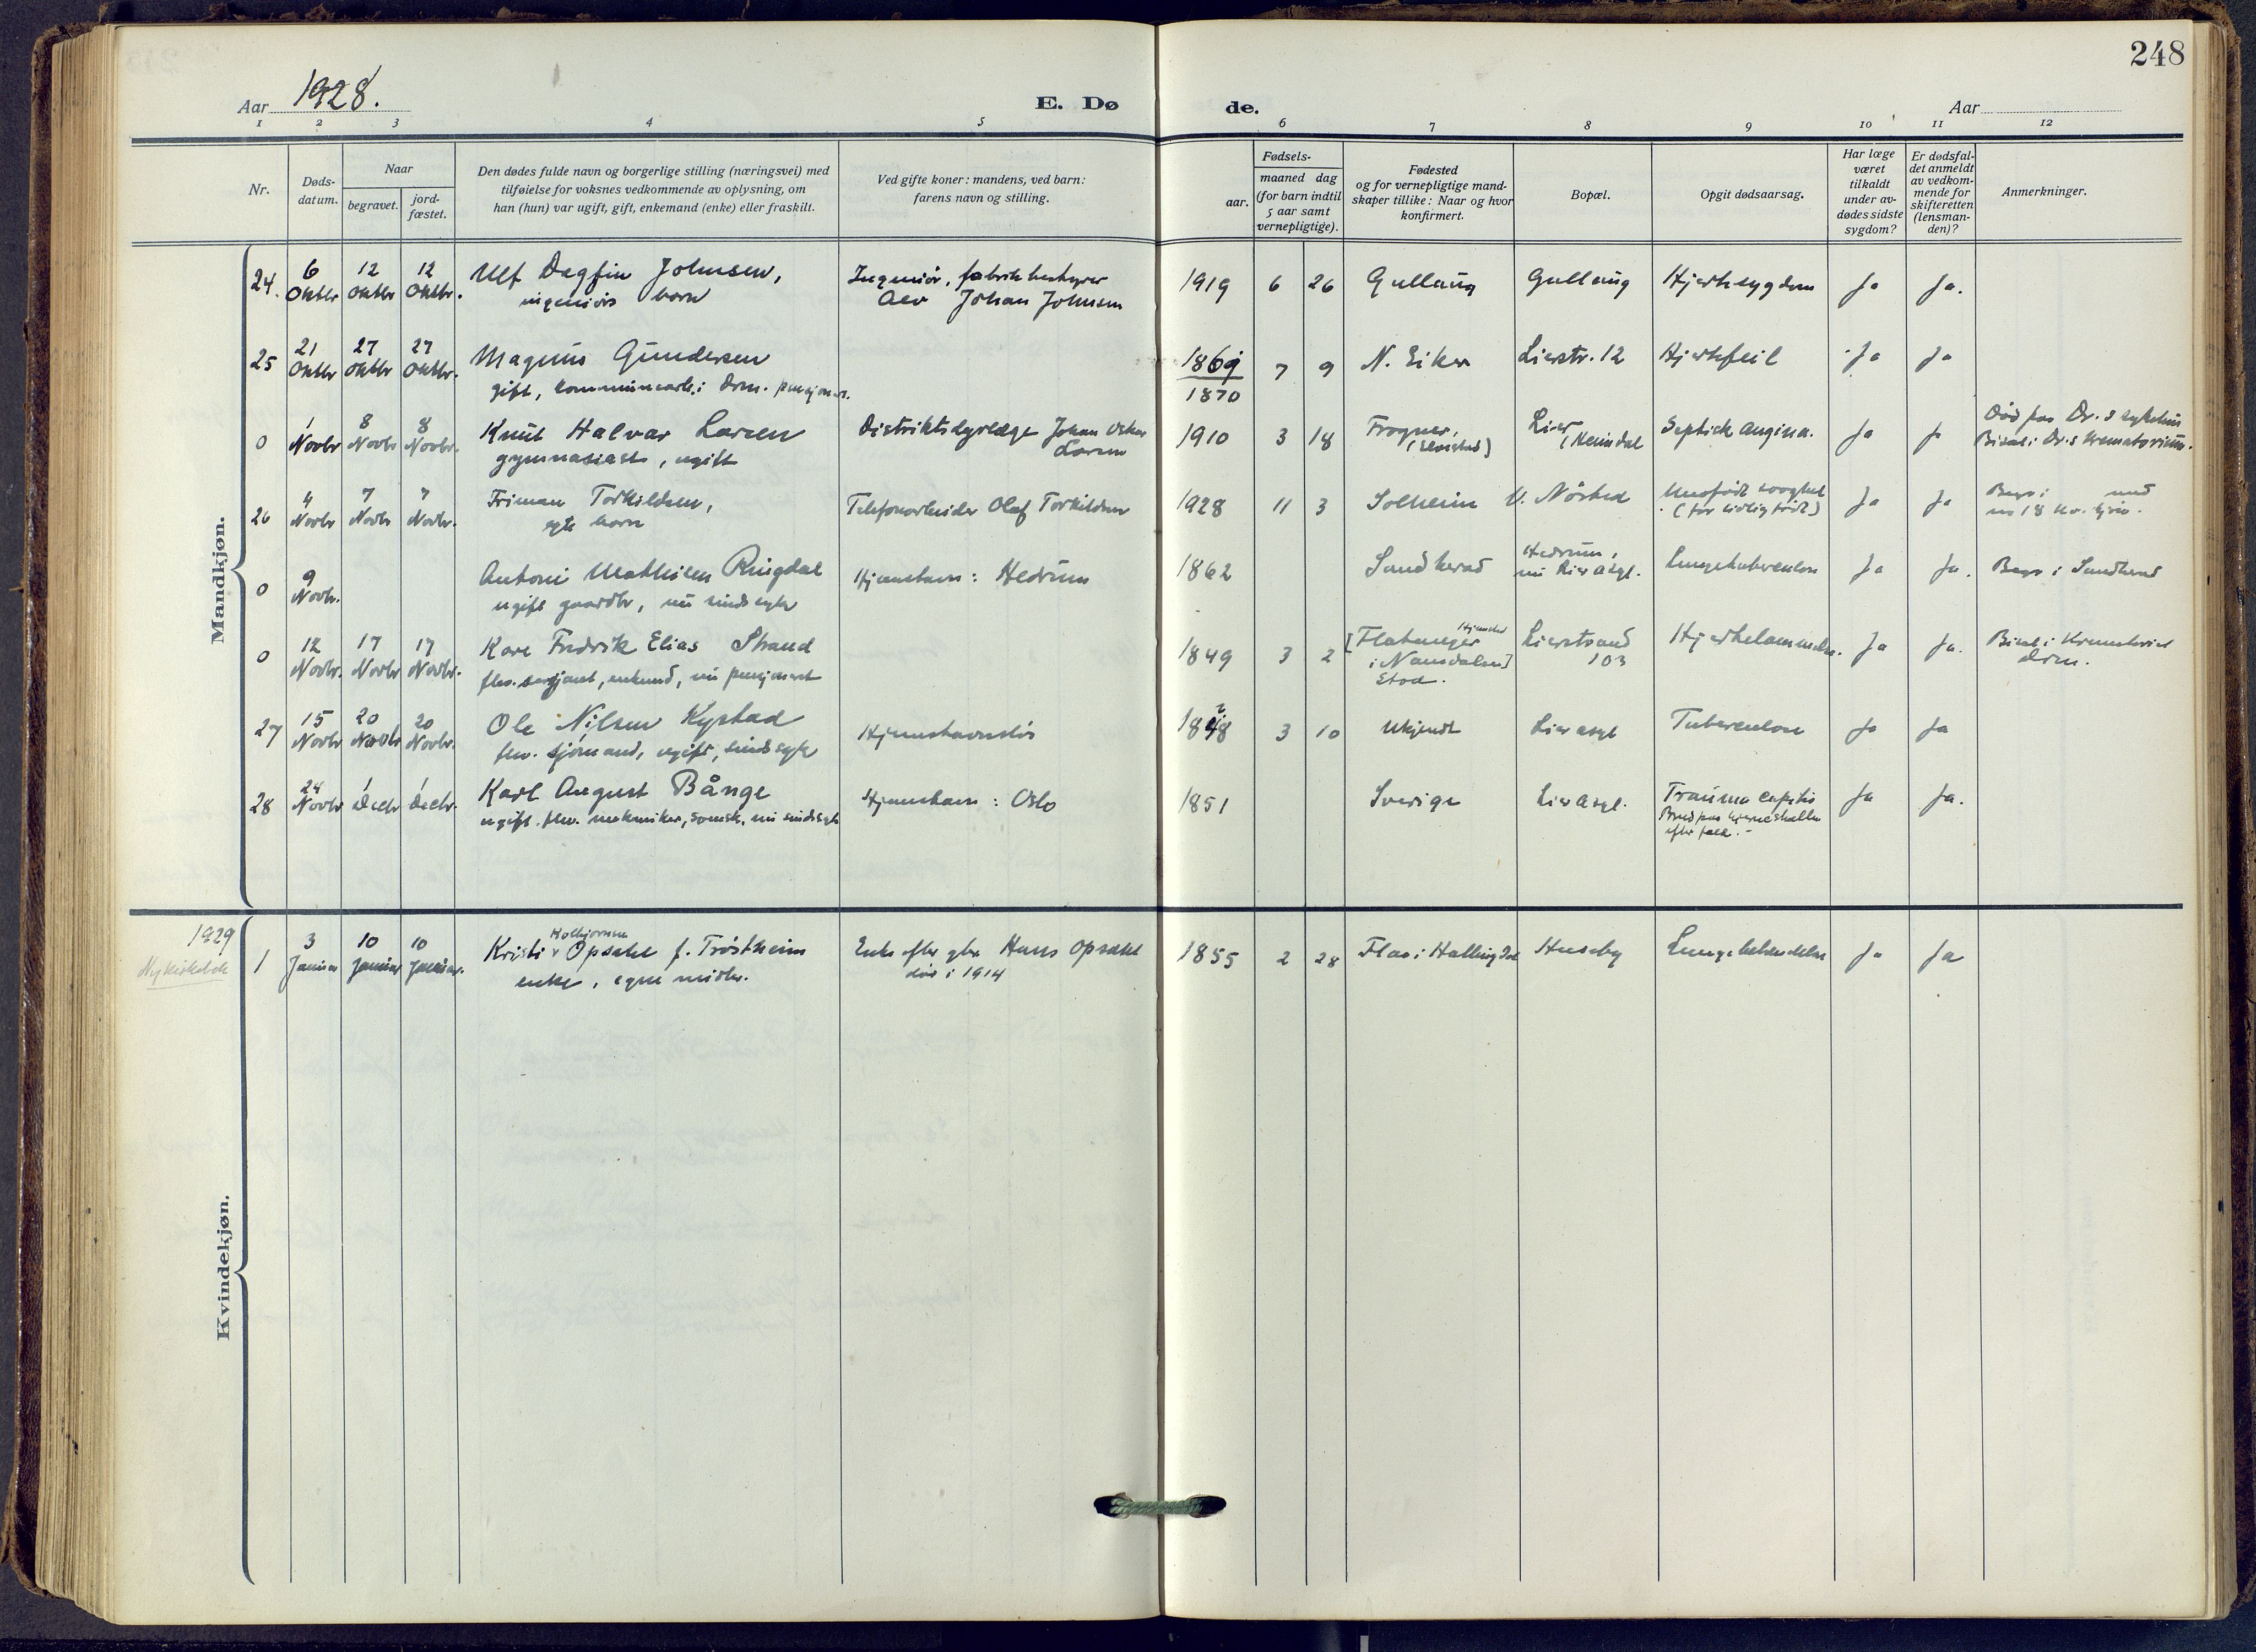 248
Aar 1928.
E. Dø
de.
Aar
1 2 3 4 5 6 7 8 9 10 11 12
Nr.
Døds-
datum.
Naar
begravet.
jord-
fæstet.
Den dødes fulde navn og borgerlige stilling (næringsvei) med
tilføielse for voksnes vedkommende av oplysning, om
han (hun) var ugift, gift, enkemand (enke) eller fraskilt.
Ved gifte koner: mandens, ved barn:
farens navn og stilling.
Fødsels-
aar.
maaned dag
(for barn indtil
5 aar samt
vernepligtige).
Fødested
og for vernepligtige mand-
skaper tillike: Naar og hvor
konfirmert.
Bopæl.
Opgit dødsaarsag.
Har læge
været
tilkaldt
under av-
dødes sidste
sygdom?
Er dødsfal-
det anmeldt
av vedkom-
mende for
skifteretten
(lensman-
den)?
Anmerkninger.
Mandkjøn.
24. 6 12 12 Ulf Dagfin Johnsen, Ingeniør, fabrikbestyrer 1919 6 26 Gullaug Gullaug Hjertesygdom Ja Ja.
Oktbr Oktbr Oktbr. ingeniørs barn Johan Johnsen
25 21 27 27 Magnus Gundersen 1869 7 9 N. Eiker Lierstr. 12 Hjertefeil Ja Ja
Oktbr Oktbr Oktbr. gift, drm. 1870
0 1 8 8 Knut Halvar Larsen Distriktsdyrlæge Johan Oskar 1910 3 18 Frogner, Lier Septisk angina. Ja Ja Død paa Dr.s sykehus
Novbr Novbr Novbr. gymnasiast, ugift Larsen Bisat i Dr.s Krematorium.
26 4 7 7 Friman Torkildsen, Telefonarbeider Olaf Torkildsen 1928 11 3 Solheim N. Nøsted (for tidlig født) Ja Ja
Novbr Novbr Novbr. egte barn
0 9 Antoni Mathisen Ringdal Hjemstavn: Hedrum 1862 Sandherad Hedrum, Lungetuberculose Ja Ja. Begr. i Sandherad
Novbr. ugift gaardbr, nu sindssyk nu Lier Asyl.
0 12 17 17 Karl Fredrik Elias Strand 1849 3 2 [Flatanger Lierstrand Hjertelammelse. Ja Ja. Bisat i Krematoriet
Novbr. Novbr Novbr. flv. sersjant, enkemd, nu pensjonist i Namdalen] 103 drm.
Stod.
27 15 20 20 Ole Nilsen Kystad Hjemstavnsløs 3 10 Ukjendt Lier asyl Tuberculose Ja Ja
Novbr Novbr Novbr. flv. sjømand, ugift, sindssyk
28 24 1 1 Karl August Bånge Hjemstavn: Oslo 1851 Sverige Lier Asyl. Trauma capitis Ja Ja.
Novbr Decbr Decbr. ugift. flv. mekaniker, svensk, nu sindssyk Brud paa hjerneskallen
efter fald.-
Kvindekjøn.
1929 1 3 10 10 Kristi Opsahl f. Trøstheim Enke efter gbr Hans Opsahl 1855 2 28 Flaa i Hallingdal Huseby Lungebetændelse Ja Ja
Januar Januar Januar. enke, egne midler. død i 1914